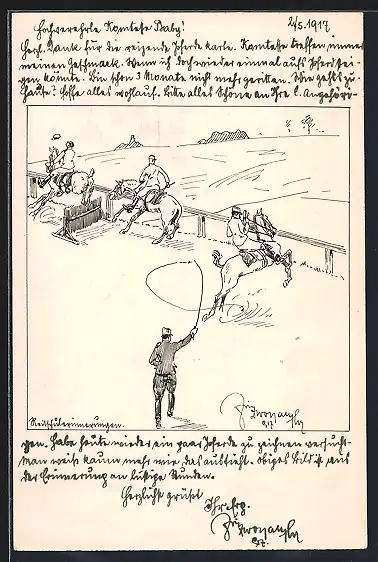 Hochverehrte Komtesse Baby! 2/5.1917
Herzl. Dank für die reizende Pferde Karte. Komtesse treffen immer
meinen Geschmack. Wenn ich doch wieder einmal aufs Pferd stei-
gen könnte. Bin schon 3 Monate nicht mehr geritten. Wie gehts zu-
hause? Hoffe alles wohlauf. Bitte alles Schöne an Ihre l. Angehöri-
Reitschulerinnerungen.
917
gen. Habe heute wieder ein paar Pferde zu zeichnen versucht.
Man weiß kaum mehr wie das aussieht. Obiges Bild ist aus
der Erinnerung an lustige Stunden.
Herzlichst grüßt
Ihr erg.